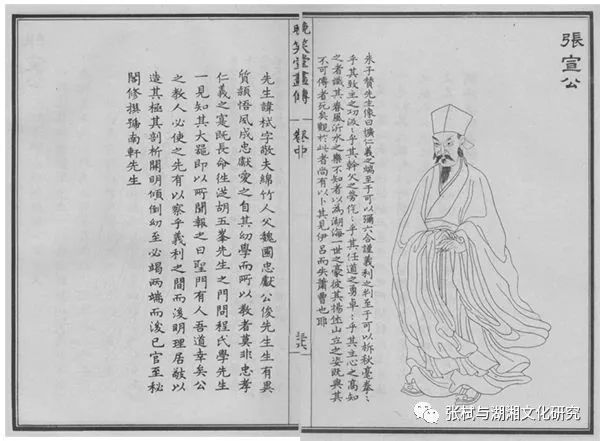 張宣公
朱子贊先生像曰擴仁義之端至于可以彌六合謹義利之判至于可以析秋毫拳〻
乎其致主之功汲〻乎其幹父之勞仡〻乎其任道之勇卓〻乎其立心之高知
之者識其春風沂水之樂不知者以為湖海一世之豪彼其揚休山立之姿既與其
不可傳者死矣觀於此者尚有以卜其見伊呂而失蕭曹也耶
晚笑堂畫傳
卷中
先生諱栻字敬夫綿竹人父魏國忠獻公俊先生生有異
質頴悟夙成忠獻愛之自其幼學而所以教者莫非忠孝
仁義之實既長命往從胡五峯先生之門問程氏學先生
一見知其大器即以所聞報之曰聖門有人吾道幸矣公
之教人必使之先有以察乎義利之間而後明理居敬以
造其極其剖析開明傾倒切至必竭兩端而後已官至秘
閣修撰號南軒先生
张栻与湖湘文化研究